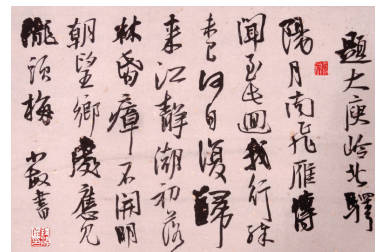 題大庾岭北驛
陽月南飛雁傳
聞至此迴我行殊
未已何日復歸
来江静潮初落
林昏瘴不開明
朝望鄉處應見
隴頭梅 書